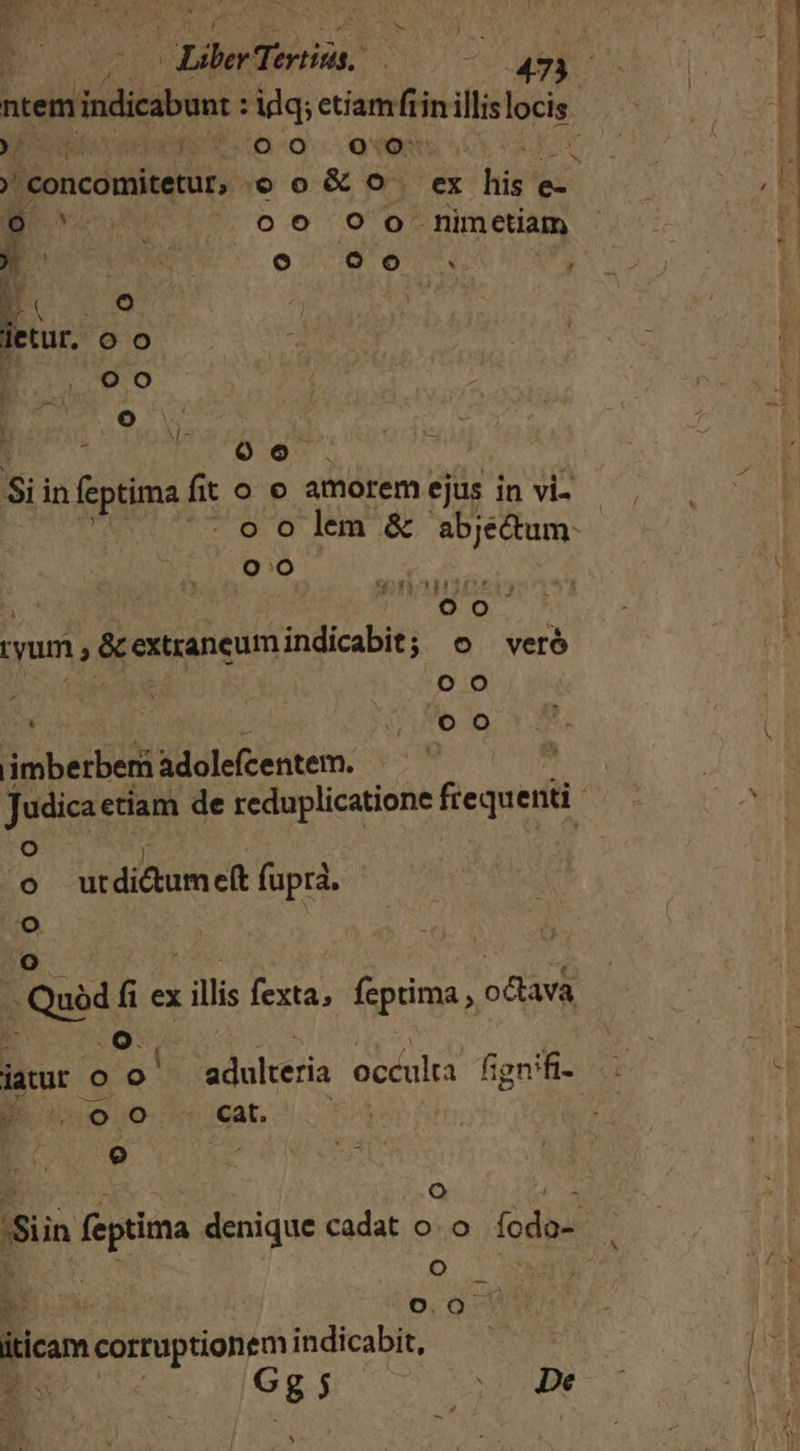 Liber Tertius. 473
ntem indicabunt : idq; etiam si in illis locis
o o o o
concomitetur, o o & o ex his e-
o o o o o nimetiam
o o o
o
ietur. o o
o o
o
o o
Si in septima fit o o amorem ejus in vi-
o o lem & abjectum
o o
o o
rvum, & extraneum indicabit; o verò
o o
o o
imberbem adolescentem.
Judica etiam de reduplicatione frequenti
o
o ut dictum est suprà.
o
o
Quòd si ex illis sexta, septima, octava
o
iatur o o adulteria occulta signifi-
o o cat.
o
o
Si in septima denique cadat o o sodo-
o
o o
iticam corruptionem indicabit,
Gg 5 De